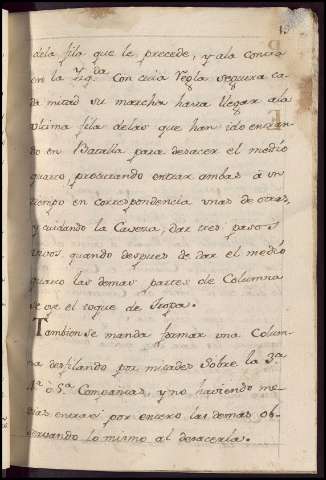 dela fila que le precede, y ala contra
en la Yzq.da Con cuia regla seguira ca
da mitad su marcha hasta llegar ala
vltima fila delas que han ido entran-
do en Batalla para desacer el medio
quarto, procurando entrar ambas à un
tiempo en correspondencia vnas de otras,
y cuidando la Caveza, dar tres pasos
vivos quando despues de dar el medio
quarto las demas partes de Columna
se oye el toque de Tropa.
Tambien se manda formar una Colum-
na desfilando por mitades sobre la 3.a
4.a ò 5.a Compañias, y no haviendo me-
dias entrarà por entero las demas ob-
servando lo mismo al desacerla.